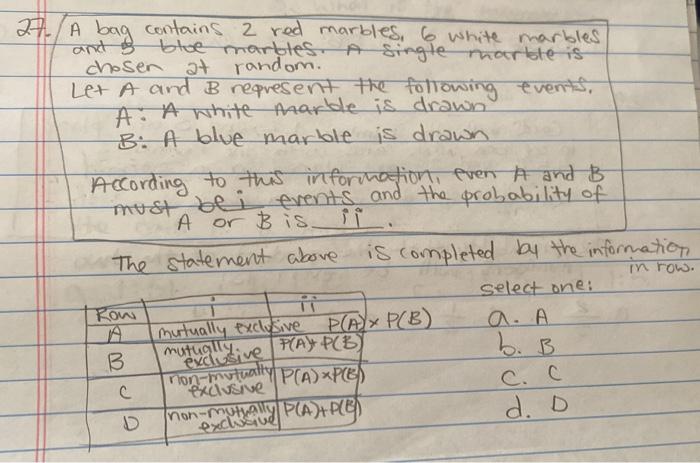 27. A bag contains 2 red marbles, 6 white marbles
and blue marbles. A single marble is
chosen at random.
Let A and B represent the following events.
A: A white marble is drawn
B: A blue marble is drawn
According to this information, even A and B
must be i events and the probability of
A or B is ii.
The statement above is completed by the information
in row.
select one:
Row i ii
A mutually exclusive P(A) x P(B)
B mutually exclusive P(A) + P(B)
C non-mutually exclusive P(A) x P(B)
D non-mutually exclusive P(A) + P(B)
a. A
b. B
c. C
d. D